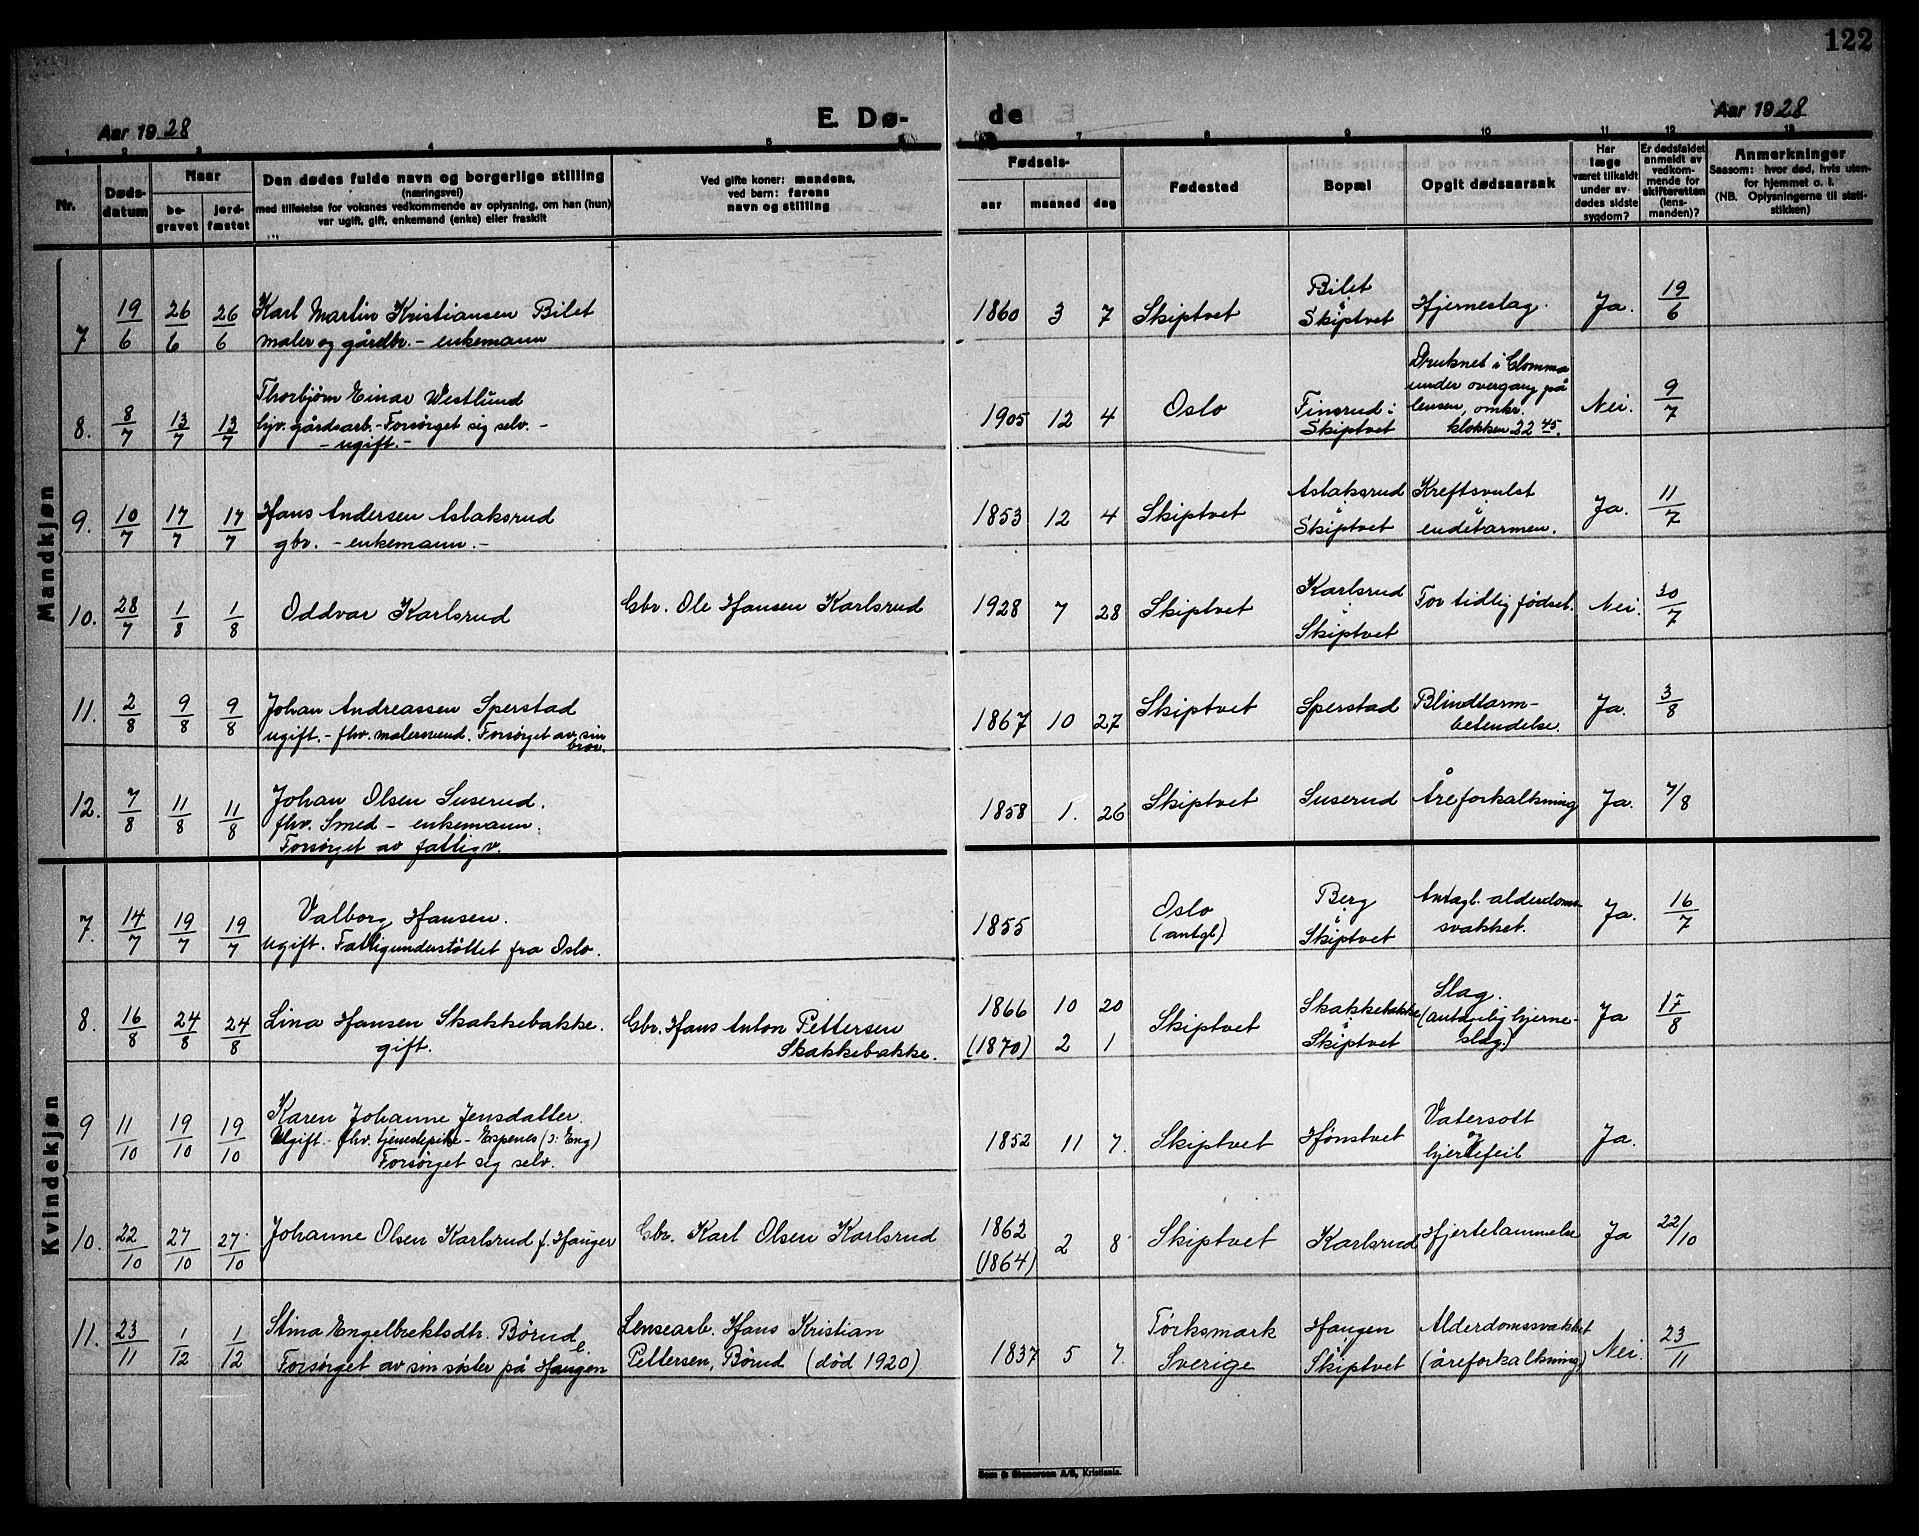 122
Aar 1928
E. Dø-
de
Aar 1928
1 2 3 4 5 6 7 8 9 10 11 12 13
Nr.
Døds-
datum
Naar
be-
gravet
jord-
fæstet
Den dødes fulde navn og borgerlige stilling
(næringsvei)
med tilføielse for voksnes vedkommende av oplysning, om han (hun)
var ugift, gift, enkemand (enke) eller fraskilt
Ved gifte koner: mandens,
ved barn: farens
navn og stilling
Fødsels-
aar
maaned
dag
Fødested
Bopæl
Opgit dødsaarsak
Har
læge
været tilkaldt
under av-
dødes sidste
sygdom?
Er dødsfaldet
anmeldt av
vedkom-
mende for
skifteretten
(lens-
manden)?
Anmerkninger
Saasom: hvor død, hvis uten-
for hjemmet o. l.
(NB. Oplysningerne til stati-
stikken)
Mandkjøn
7 19/6 26/6 26/6 Karl Martin Kristiansen Bilet
maler og gårdbr. - enkemann
1860 3 7 Skiptvet
Bilet
i
Skiptvet
Hjerneslag.
Ja. 19/6
8. 8/7 13/7 13/7 Thorbjørn Einar Westlund
hjv. gårdsarb. - Forsørget sig selv. -
- ugift. -
1905 12 4 Oslo
Finsrud i
Skiptvet
Druknet i Glomma
under overgang på
lensen, omkr.
klokken 22 45.
Nei. 9/7
9. 10/7 17/7 17/7 Hans Andersen Aslaksrud
gbr. - enkemann. -
1853 12 4 Skiptvet
Aslaksrud
i
Skiptvet
Kreftsvulst
i
endetarmen.
Ja. 11/7
10. 28/7 1/8 1/8 Oddvar Karlsrud
Gbr. Ole Hansen Karlsrud
1928 7 28 Skiptvet
Karlsrud
i
Skiptvet
For tidlig fødset.
Nei. 30/7
11. 2/8 9/8 9/8 Johan Andreassen Sperstad
ugift. - fhv. malersvend. Forsørget av sin
bror.
1867 10 27 Skiptvet
Sperstad
Blindtarm-
betendelse.
Ja. 3/8
12. 7/8 11/8 11/8 Johan Olsen Suserud.
fhv. Smed - enkemann.
Forsørget av fattigv.
1858 1. 26 Skiptvet
Suserud
Åreforkalkning
Ja. 7/8
Kvindekjøn
7. 14/7 19/7 19/7 Valborg Hansen.
ugift. Fattigunderstøttet fra Oslo.
1855
Oslo
(antgl)
Berg
i
Skiptvet
Antagl. alderdoms-
svakket.
Ja. 16/7
8. 16/8 24/8 24/8 Lina Hansen Skakkebakke.
gift.
Gbr. Hans Anton Pettersen
Skakkebakke.
1866 10 20
(1870) 2 1
Skiptvet
Skakkebakke
i
Skiptvet
Slag.
(antagelig hjerne-
slag)
Ja 17/8
9 11/10 19/10 19/10 Karen Johanne Jensdatter.
Ugift. fhv. tjenestepike - Espenes (ɔ: Eng)
Forsørget sig selv.
1852 11 7. Skiptvet
Hønstvet
Vatersott
og
hjertefeil
Ja.
10. 22/10 27/10 27/10 Johanne Olsen Karlsrud f. Hanger
Gbr. Karl Olsen Karlsrud
1863
(1864)
2 8 Skiptvet
Karlsrud
Hjertelammelse
Ja 22/10
11. 23/11 1/12 1/12 Stina Engelbrektsdtr. Børud
e.
Forsørget av sin søster på Haugen
Lensearb. Hans Kristian
Pettersen, Børud (død 1920)
1837 5 7.
Törksmark
Sverige
Haugen
Skiptvet
Alderdomssvakket
(åreforkalkning)
Nei. 23/11
Sem & Stenersen A/S, Kristiania.